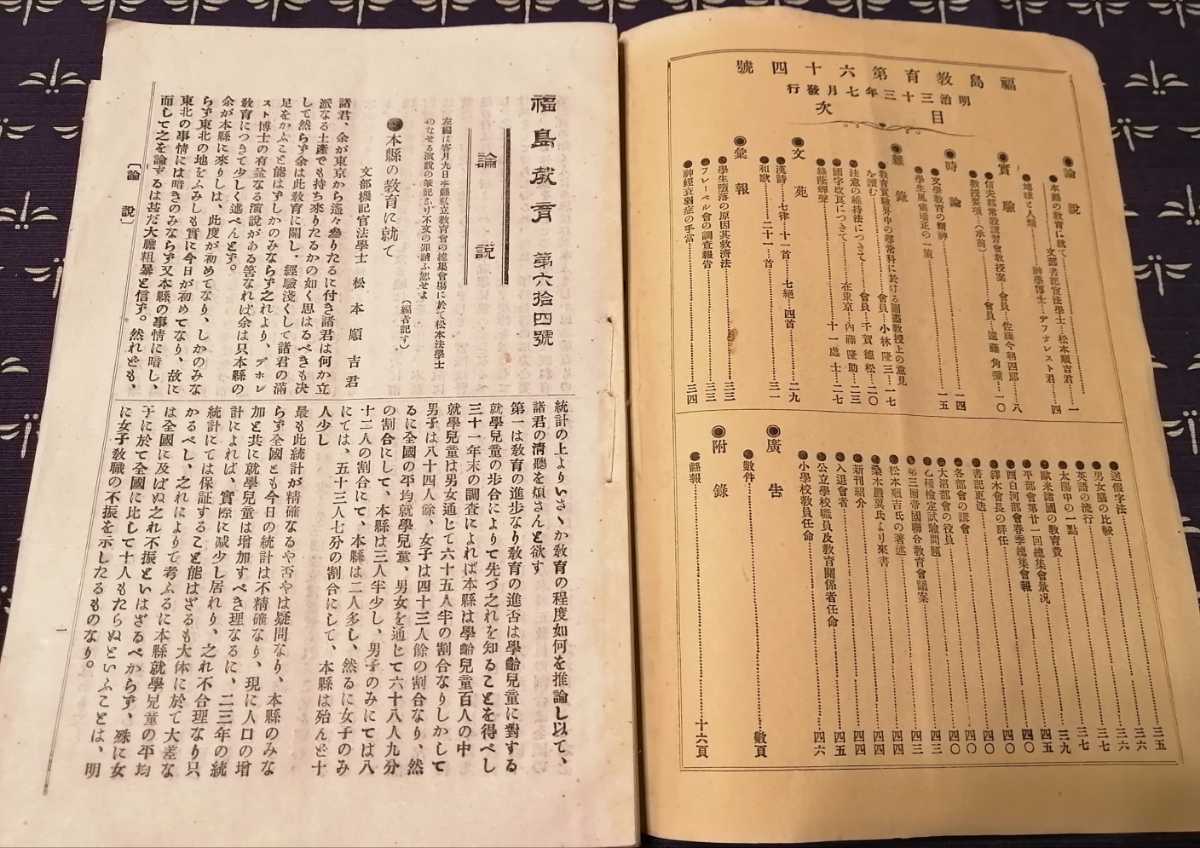 福島教育第六十四號
明治三十三年七月發行
目次
●論說
●本縣の教育に就て……文部書記官法學士…松本順吉君…一
●地球と人類……神學博士…デフオレスト君…四
●實驗
●信夫郡常設講習會教授案…會員…佐藤今朝四郎…八
教授要項(承前)……會員…遠藤角彌…一〇
●時論
●文學教育の精神……一四
●學生風儀矯正の一策……一五
●雜錄
●教育實驗界中の尋常科に於ける圖畫教授上の意見を讀む……會員…小林隆三…一七
●注意の維持法につきて……會員…千賀德松…二〇
●國字改良につきて……在東京…內藤隆助…二三
十一處士…二七
●文苑
●漢詩……七律…十一首…七絕…四首……二九
●和歌……二十一首……三一
●彙報
●學生墮落の原因其救濟法……三三
●フレーベル會の調査報告……三三
●神經衰弱症の手當……三四
●送假字法……三五
●男女腦の比較……三六
●英語の流行……三七
●太陽中の一點……三九
●歐米諸國の教育費……四五
●平部會第廿一回總集會景況……四〇
●西白河部會春季總集會報……四〇
●會長の辭任……四〇
●書記更迭……四〇
●各部會の議會……四〇
●大沼部會の役員……四三
●乙種檢定試驗問題……四三
●第三回帝國聯合教育會議案……四三
●松本順吉氏の著述……四四
●氏より來書……四四
●新刊紹介……四四
●入退會者……四五
●公立學校職員及教育關係者任命
●小學校教員任命……四六
●廣告
●數件……數頁
●附錄
●縣報……十六頁
福島教育 第六拾四號
論說
左編は客月九日本縣私立教育會の總集會場に於て松本法學士のなせる演說の筆記なり不文の罪請ふ恕せよ
(編者記す)
●本縣の教育に就て
文部書記官法學士 松本順吉君
諸君、余が東京から遙々參りたるに付き諸君は何か立
派なる土產でも持ち來りたるかの如く思はるべきも决
して然らず余は此教育に關し、經驗淺くして諸君の滿
足をかふこと能はずしかのみならず之れより、デホレ
スト博士の有益なる演說がある筈なれば余は只本縣の
教育につきて少しく述べんとす。
余が本縣に來りしは、此度が初めてなり、しかのみな
らず東北の地をふみしも實に今日が初めてなり、故に
東北の事情には暗きのみならず又本縣の事情に暗し、
而して之を論ずるは甚だ大膽粗暴と信ず。然れども、
統計の上よりいさゝか教育の程度如何を推論し以て、
諸君の清聽を煩さんと欲す
第一は教育の進步なり教育の進否は學齡兒童に對する
就學兒童の步合によりて先づ之れを知ることを得べし
三十一年末の調査によれば本縣は學齡兒童百人の中
就學兒童は男女通じて六十五人半の割合なりしかして
男子は八十四人餘、女子は四十三人餘の割合なり、然
るに全國の平均就學兒童、男女を通じて六十八人九分
の割合にして、本縣は三人半少し、男子のみにては八
十二人の割合にて、本縣は二人多し、然るに女子のみ
にては、五十三人七分の割合にして、本縣は殆んと十
人少し
最も此統計が精確なるや否やは疑問なり、本縣のみな
らず全國とも今日の統計は不精確なり、現に人口の增
加と共に就學兒童は增加すべき理なるに、二三年の統
計によれば、實際に減少し居れり、之れ不合理なり只
統計にては保証すること能はざるも大体に於て大差な
かるべし、之れによりて考ふるに本縣就學兒童の平均
は全國に及ばぬ之れ不振といはざるべからず、殊に女
子に於て全國に比して十人もたらぬといふことは、明
に女子教職の不振を示したるものなり。
〔論說〕
一